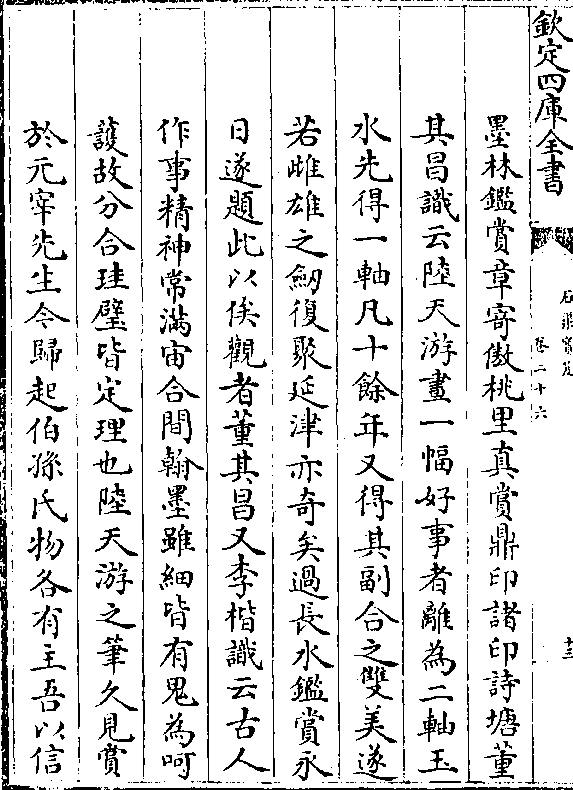 欽定四庫全書
石渠寶笈
卷二十六
十三
墨林鑑賞章寄傲桃里真賞鼎印諸印詩塘董
其昌識云陸天游畫一幅好事者離為二軸玉
水先得一軸凡十餘年又得其副合之雙美遂
若雌雄之劒復聚延津亦奇矣過長水鑑賞永
日遂題此以俟觀者董其昌又李楷識云古人
作事精神常滿宙合間翰墨雖細皆有鬼為呵
護故分合珪璧皆定理也陸天游之筆久見賞
於元宰先生今歸起伯孫氏物各有主吾以信